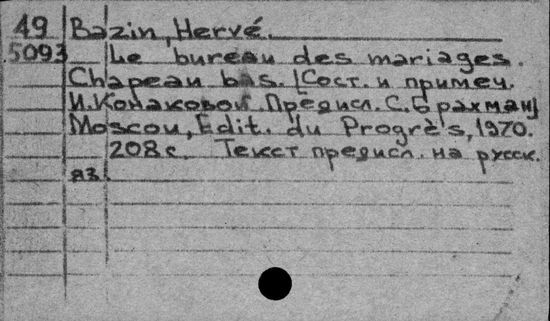 49 Bazin, Hervé.
5093 Le bureau des mariages.
Chapeau bas. [Сост. и примеч.
И.Конаковой. Предисл. С.Брахман]
Moscou, Edit. du Progrès, 1970.
208 с. Текст предисл. на русск.
яз.